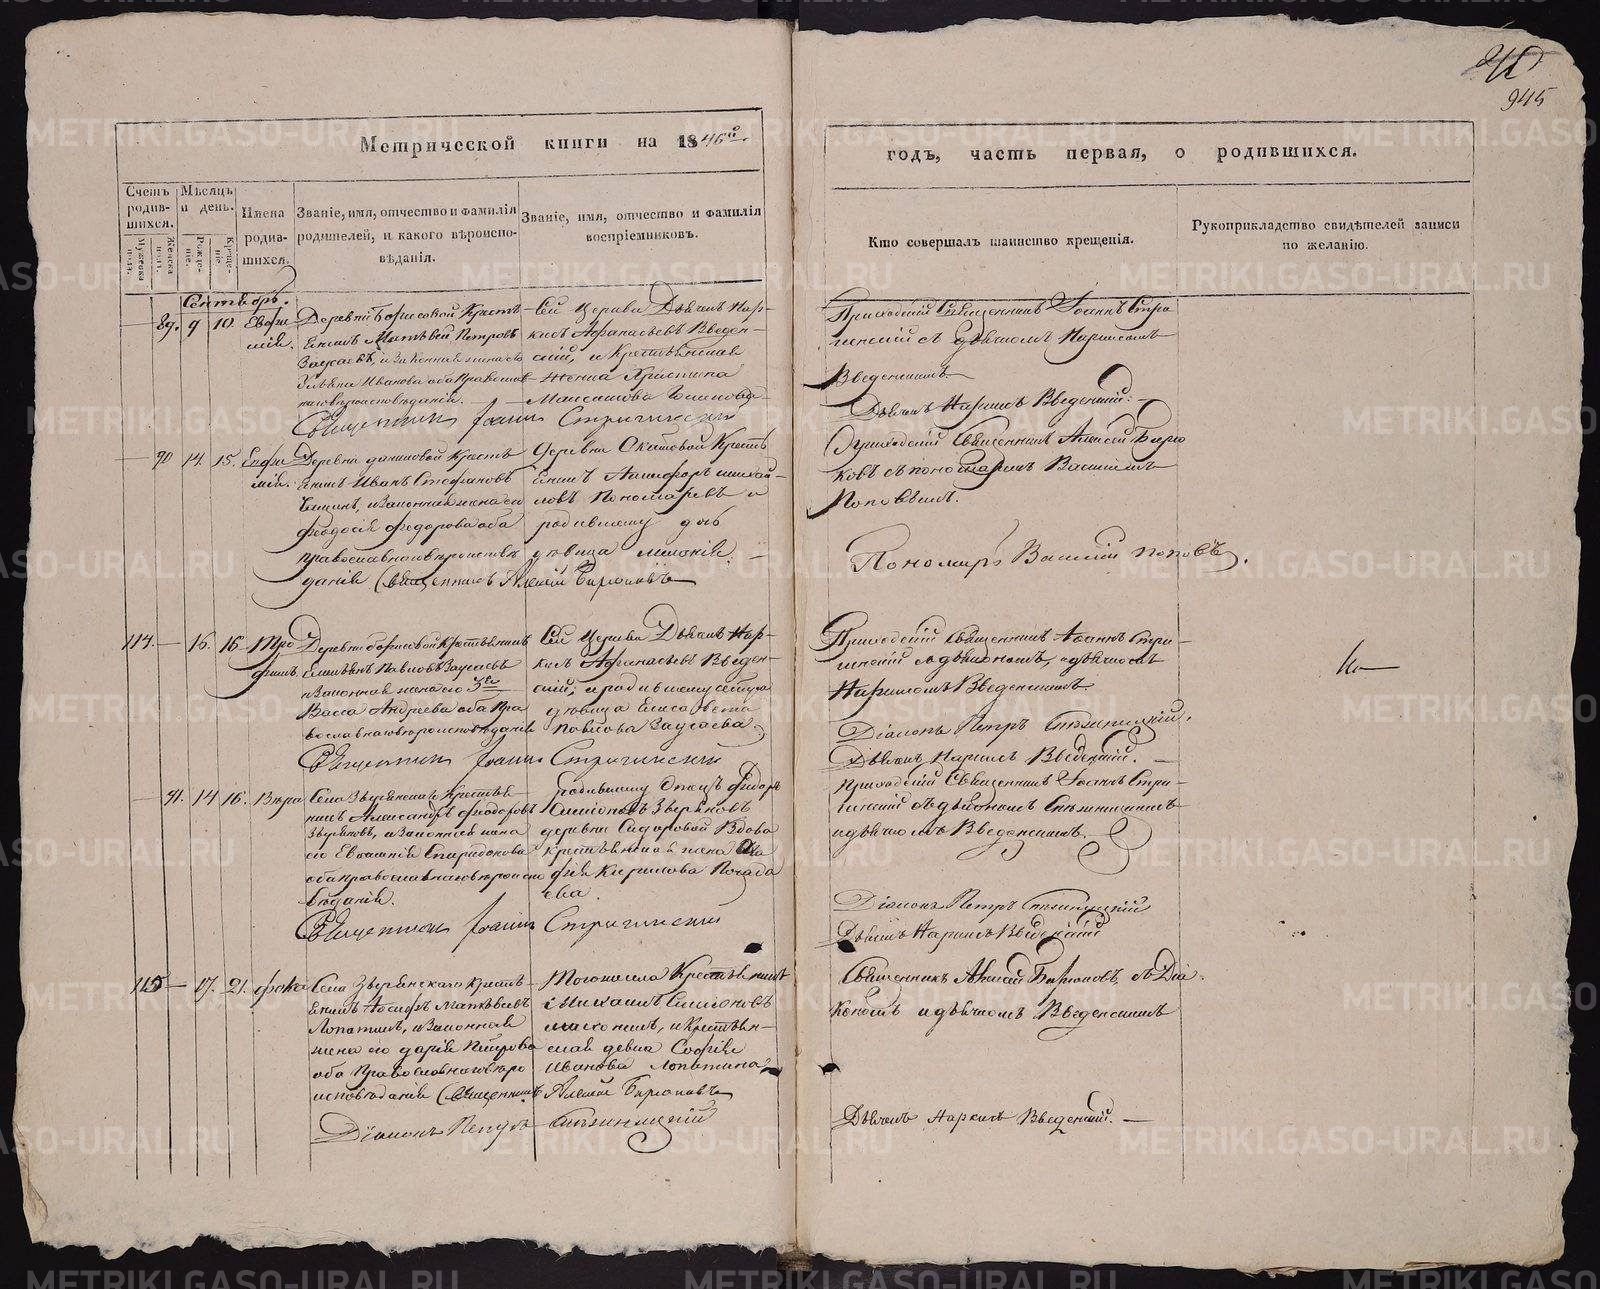 945
Метрической книги на 1846й
годъ, часть первая, о родившихся.
Счетъ родив-шихся.
Мужеска пола.
Женска пола.
Мѣсяцъ и день.
Рожде-ніе.
Креще-ніе.
Имена
родив-
шихся.
Званіе, имя, отчество и фамилія
родителей, и какого вѣроиспо-
вѣданія.
Званіе, имя, отчество и фамилія
воспріемниковъ.
Кто совершалъ таинство крещенія.
Рукоприкладство свидѣтелей записи
по желанію.
Сентябрь.
89. 9 10. Евфи
мія.
Деревни Борисовой Кресть
янинъ Матѣвй Петровъ
Заусаевъ, и законная жена его
Иванова оба православ
наго вѣроисповѣданія.
Сей Церкви Дьячекъ Нар-
кисъ Афанасьевъ Введен-
скій, и Крестьянская
Жена Христина
Максимова
Священникъ Іоаннъ Стригинскій
Приходскій Священникъ Іоаннъ Стри
гинскій съ дьячкомъ Наркисомъ
Введенскимъ
Дьячекъ Наркисъ Введенскій.
90 14. 15.
Деревни Даниловой Кресть
янинъ Иванъ Стефановъ
и законная жена его
Феодосія Федорова оба
православнаго вѣроисповѣ
данія Священникъ Алексій Бирюковъ
Деревни Скатовой Кресть
янинъ Никифоръ Михай
ловъ Пономаревъ и
родившему дочь
дѣвица
Приходскій Священникъ Алексій Бирю
ковъ съ пономаремъ Василіемъ
Поповымъ.
Пономарь Василій Поповъ.
114. 16. 16. Тро
фимъ.
Деревни Борисовой Крестьянинъ
Павловъ Заусаевъ
и законная жена его
Васса Андреева оба пра
вославнаго вѣроисповѣданія
Священникъ Іоаннъ Стригинскій
Сей Церкви Дьячекъ Нар-
кисъ Афанасьевъ Введен-
скій, и родившему сестра
дѣвица Елисавета
Павлова Заусаева.
Приходскій Священникъ Іоаннъ Стри-
гинскій съ діакономъ, и дьячкомъ
Наркисомъ Введенскимъ.
Діаконъ Петръ
Дьячекъ Наркисъ Введенскій.
91. 14 16. Вѣра
Села Звѣринскаго Крестья
нинъ Александръ Феодоровъ
Звѣриновъ, и законная жена
его Евгенія Спиридонова
оба православнаго вѣроиспо
вѣданія.
Священникъ Іоаннъ Стригинскій
родившему Отецъ Федоръ
Симіоновъ Звѣриновъ
деревни Сидоровой Вдова
крестьянская жена
Кирилова
ева.
приходскій Священникъ Іоаннъ Стри-
гинскій съ діакономъ
и дьячкомъ Введенскимъ.
Діаконъ Петръ
Дьячекъ Наркисъ Введенскій
115 17. 21. Фока
Села Звѣринскаго Кресть
янинъ Іосифъ Матвѣевъ
Лопатинъ, и законная
жена его Дарія Петрова
оба православнаго вѣро
исповѣданія Священникъ Алексій Бирюковъ
Діаконъ Петръ
Тогоже села Крестьянинъ
Михаилъ Симіоновъ
и Крестьян-
ская девка Софія
Иванова Лопатина
Священникъ Алексій Бирюковъ, съ Діа
кономъ и дьячкомъ Введенскимъ
Дьячекъ Наркисъ Введенскій.
METRIKI.GASO-URAL.RU